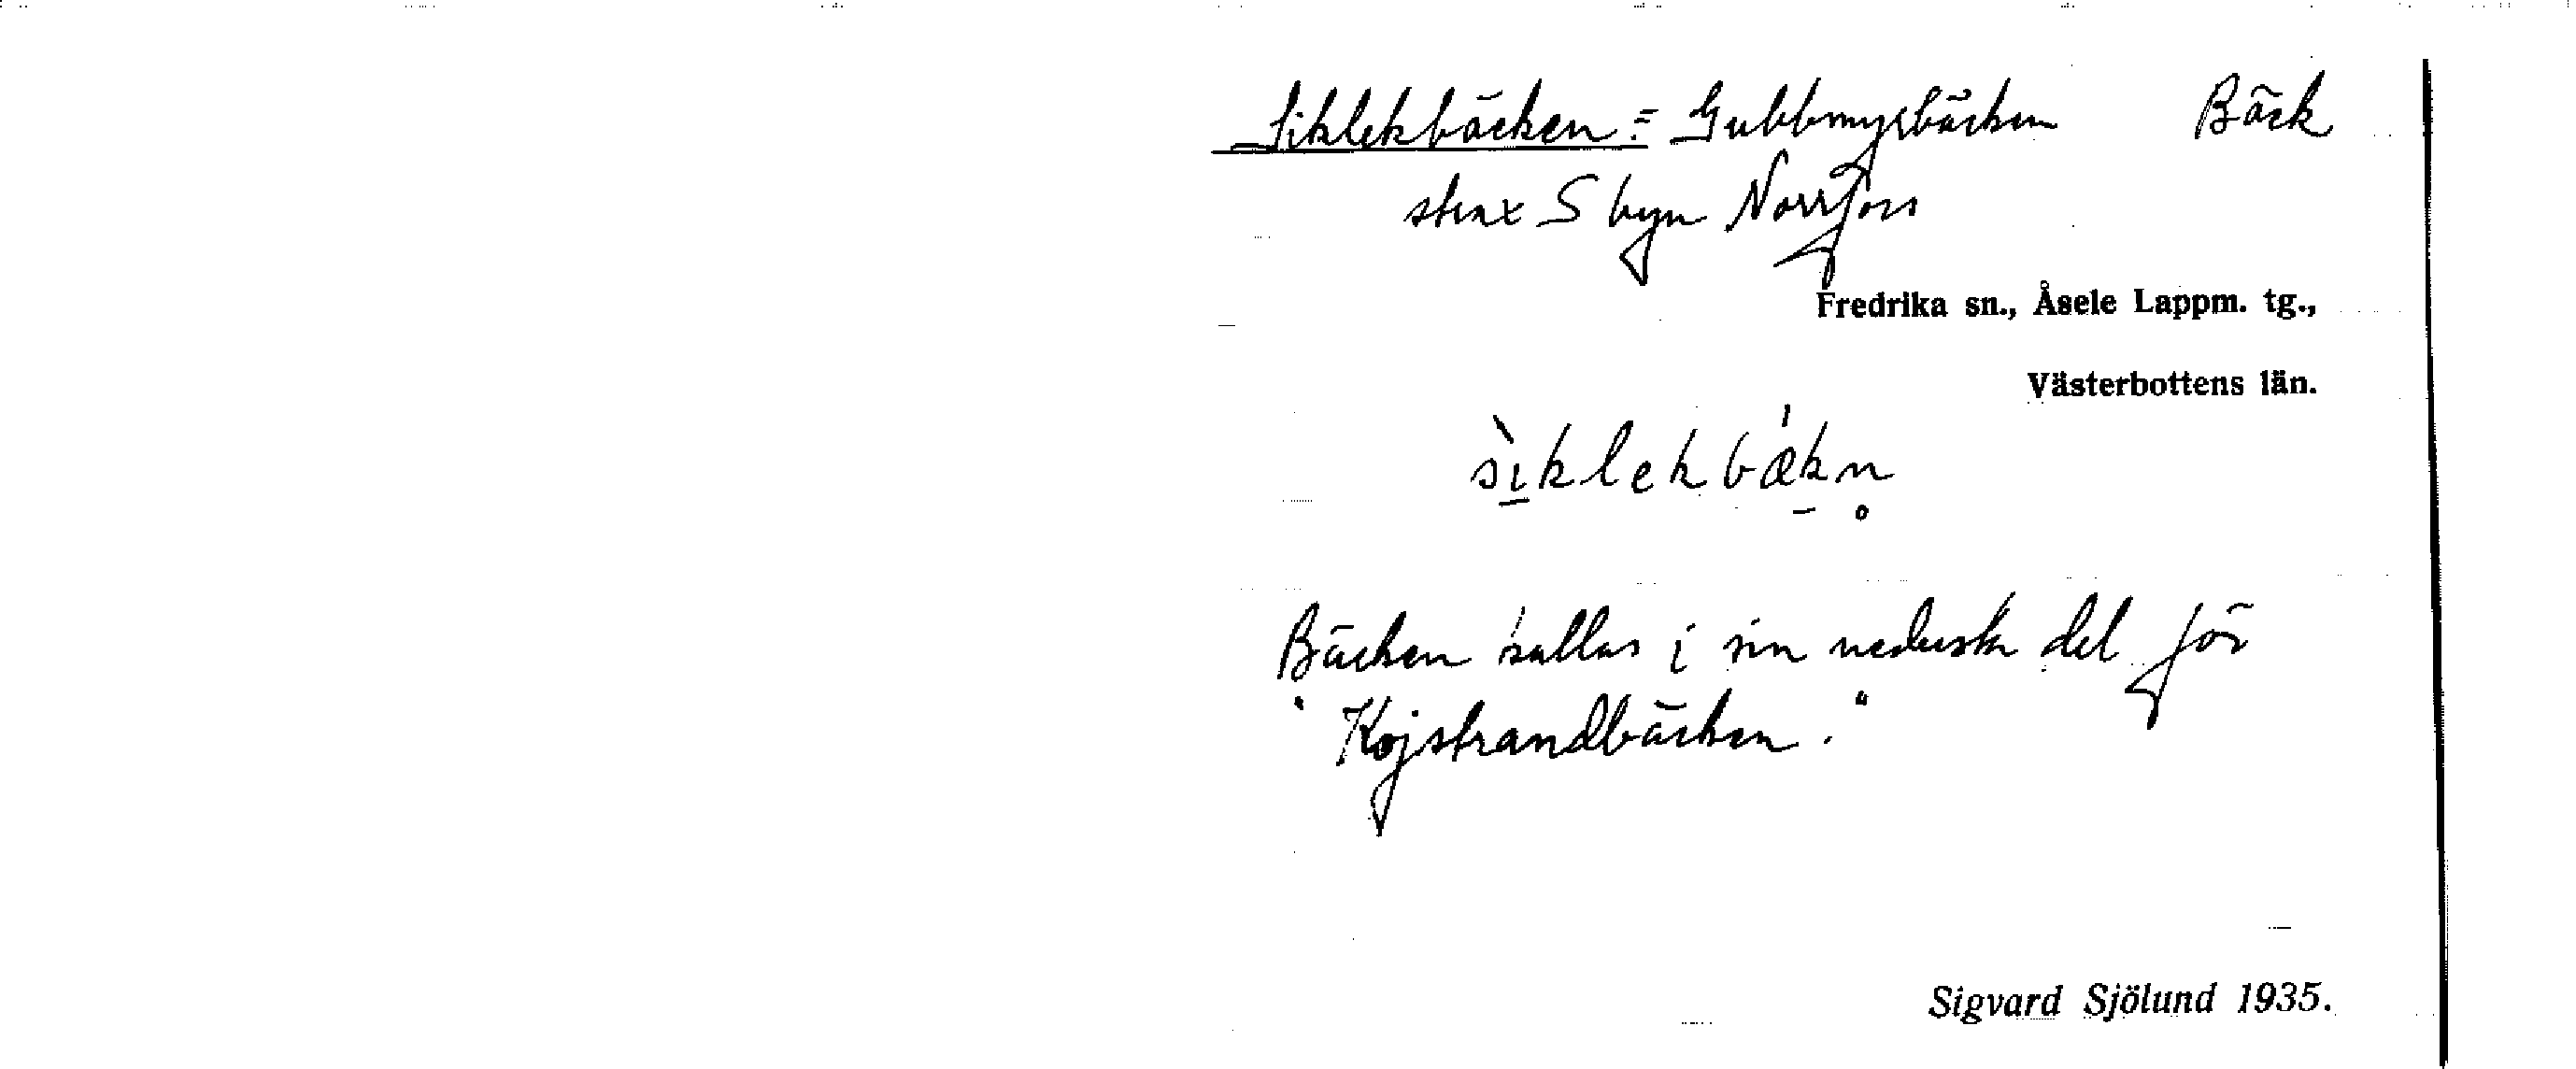 Siklekbäcken = Gubbmyrbäcken Bäck
strax S byn Norrfors
Fredrika sn., Åsele Lappm. tg.,
Västerbottens län.
sìklekbækn̥
Bäcken kallas i sin nedersta del för
"Kojstrandbäcken."
Sigvard Sjölund 1935.